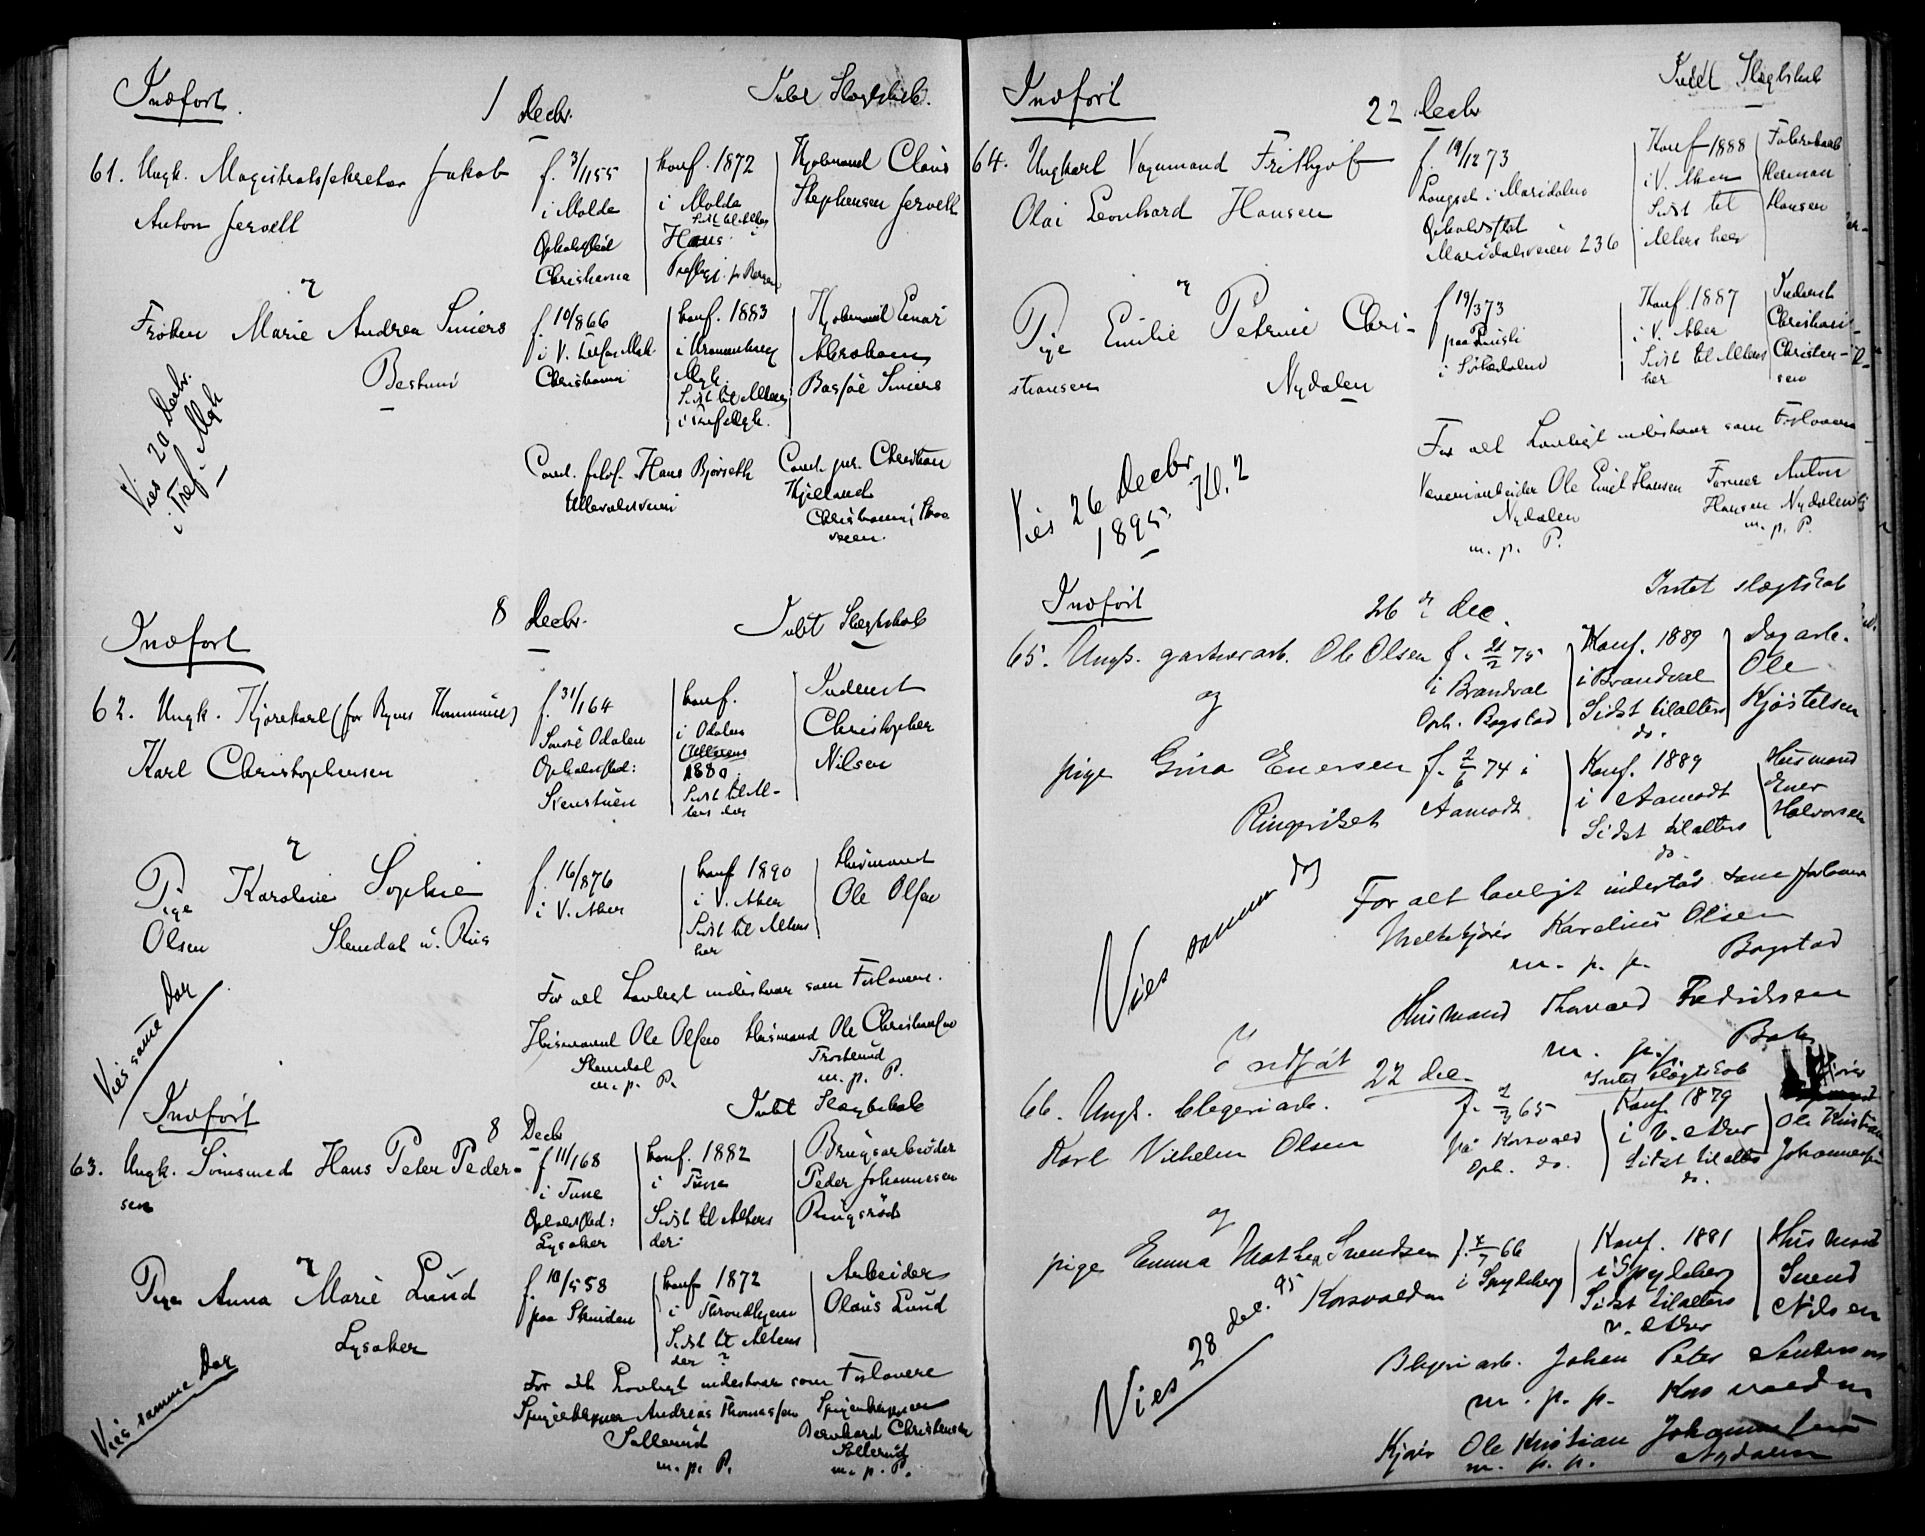 Indført.
1 Decbr.
Intet Slægtskab.
61. Ungk. Magistratssekretær Jakob
Anton Jervell
f. 3/1 55
i Molde
Opholdssted
Christiania
konf. 1872
i Molde
Sidst til Alters
Kjøbmand Claus
Stephensen Jervell
&
Frøken Marie Andrea Smiers
Bestum
f. 10/8 66
Christiania
konf. 1883
Mgh.
Sidst til Alters
i Tref. Mgh.
Kjøbmand Einar
Abraham
Smiers
Viet 20 Decbr.
i Tref. Mgh
Cand. filos. Hans Bjørseth
Ullevoldsveien
Cand. jur. Christian
Kjelland
Christiania
Indført
8 Decbr.
Intet Slægtskab
62. Ungk. Kjørekarl (for Byens Kommune)
Karl Christophersen
f. 31/1 64
Søndre Odalen
Opholdssted:
Svenstuen
konf.
i Odalen
Ullern
1880.
Sidst til Al-
ters der
Inderst
Christopher
Nilsen
&
Pige Karoline Sophie
Olsen Slemdal u. Riis
f. 16/8 76
i V. Aker
konf 1890
i V. Aker
Sidst til Alters
her
Husmand
Ole Olsen
Viet samme Dag
For alt Lovligt indestaar som Forlovere.
Husmand Ole Olsen Husmand Ole Christiansen
Slemdal
m. p. P. m. p. P.
Indført
8 Decbr
Intet Slægtskab
63. Ungk. Sømsmed Hans Peter Peder-
sen
f 11/1 68
i Tune
Opholdssted:
Lysaker
konf. 1882
i Tune
Sidst til Alters
der.
Brugsarbeider
Peder Johannesen
Ringsrød
&
Pige Anna Marie Lund
Lysaker
f. 18/5 58
paa Strinden
konf 1872
i Throndhjem
Sidst til Alters
der ?
Arbeider
Olaus Lund
Viet samme Dag
For alt Lovligt indestaar som Forlovere
Spigerklipper Andreas Thomassen Spigerklipper
Sollerud Bernhard Christensen
Sollerud
m. p. P. m. p. P.
Indført
22 Decbr
Intet Slægtskab
64. Ungkarl Vognmand Frithjof
Olai Leonhard Hansen
f. 19/12 73
Langset i Maridalen
Opholdssted
Maridalsveien 236
Konf 1888
i V. Aker
Sidst til
Alters her
Herman
Hansen
&
Pige Emilie Petrine Chri-
stiansen Nydalen
f 19/3 73
i Sørkedalen
Konf. 1887
i V. Aker
Sidst til Alters
her
Inderst
Christian
Christen-
sen
Viet 26 Decbr
1895. Kl. 2
For alt Lovligt indestaar som Forlovere
Væveriarbeider Ole Emil Hansen Former Anton
Nydalen Hansen Nydalen
m. p. P. m. p. P.
Indført
26 de Dec.
Intet slægtskab
65. Ungk. gartnerarb. Ole Olsen
f. 21/2 75
i Brandval
Oph. Bogstad
Konf. 1889
i Brandval
Sidst til alters
do.
Dagarb.
Ole
Kjøstelsen
og
pige Gina Enersen
f. 2/6 74 i
Aamodt
Konf. 1889
i Aamodt
Sidst til alters
do.
Husmand
Ener
Halvorsen
Viet samme dag
For alt lovligt indestår som forlovere
Melkekjører Karelius Olsen
m. p. p. Bogstad
Husmand Thorvald Fredriksen
m. p. p.
Indført
22 dec.
Intet slægtskab
66. Ungk. blegeriarb.
Karl Vilhelm Olsen
f. 2/3 65
på Korsvold
Oph. do.
Konf 1879
i V. Aker
Sidst til alters
do.
Kjører
Ole Kristian
Johannesen
og
pige Emma Mathea Svendsen
Korsvolden
f. 4/7 66
i Spydeberg
Konf. 1881
i Spydeberg
Sidst til alters
V. Aker
Husmand
Svend
Nilsen
Viet 28 dec. 95
Blegeriarb. Johan Peter
m. p. p. Korsvolden
Kjører Ole Kristian Johannesen
m. p. p. Nydalen